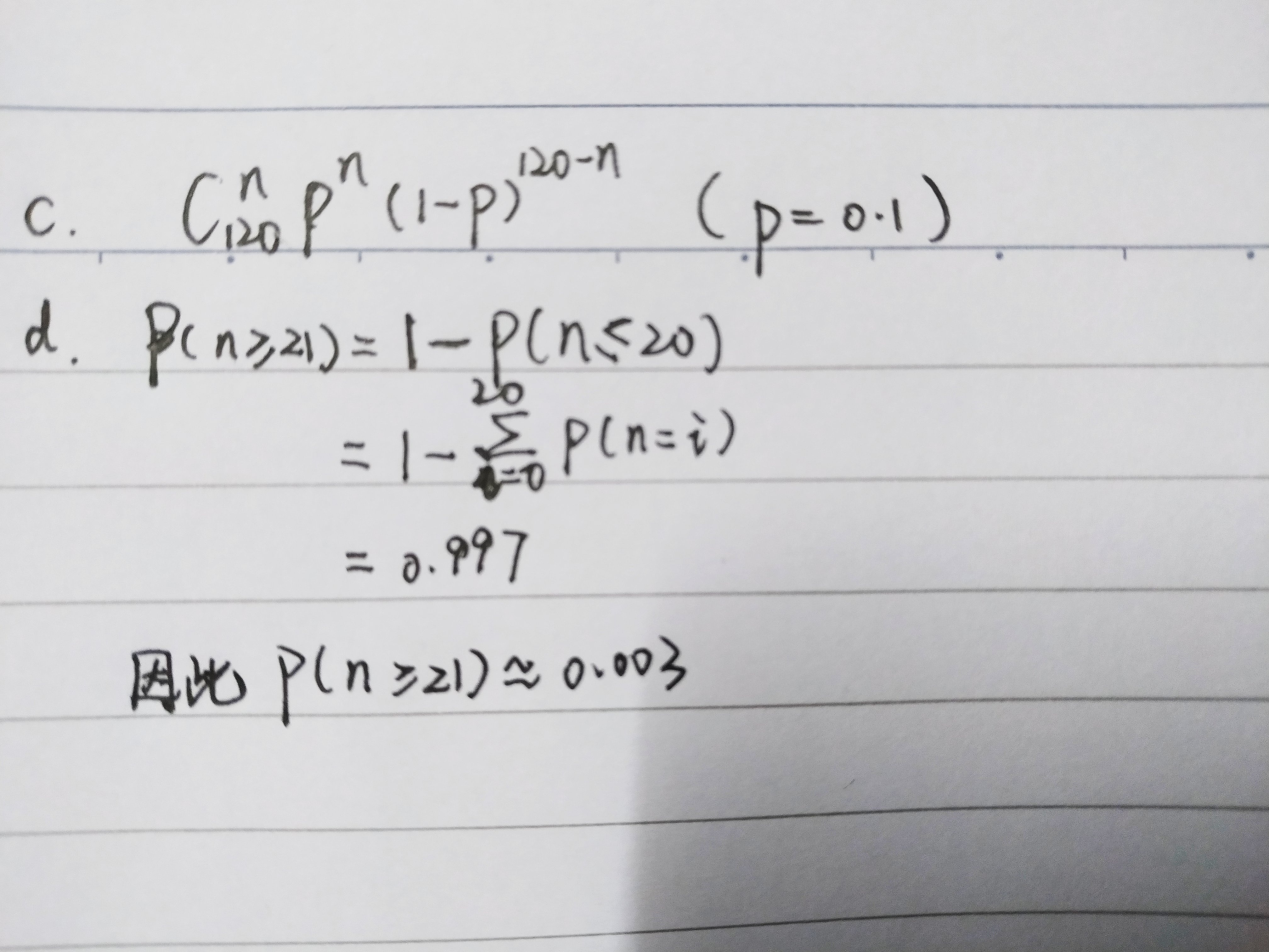 c. C₁₂₀ⁿ pⁿ (1-p)¹²⁰⁻ⁿ (p=0.1)
d. P(n≥21)=1-P(n≤20)
=1-∑²⁰ᵢ₌₀ P(n=i)
=0.997
因此 P(n≥21)≈0.003